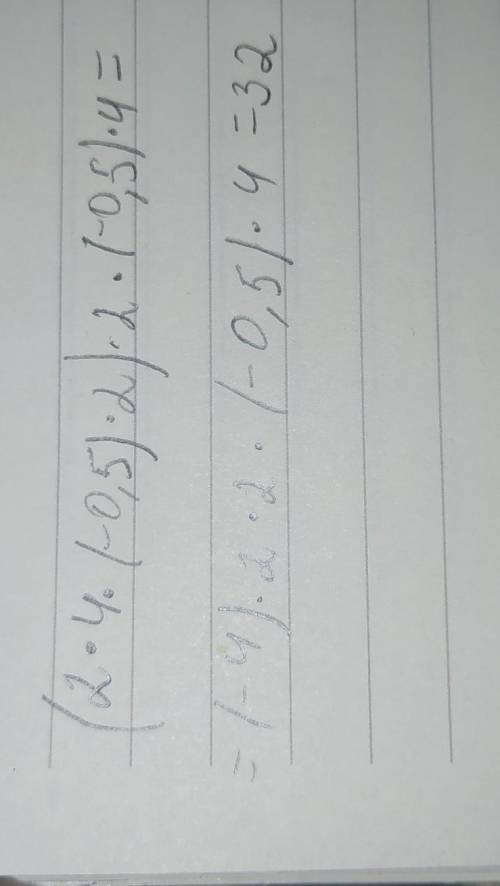 (2·4·(-0,5)·2)·2·(-0,5)·4=
=(-4)·2·2·(-0,5)·4=32